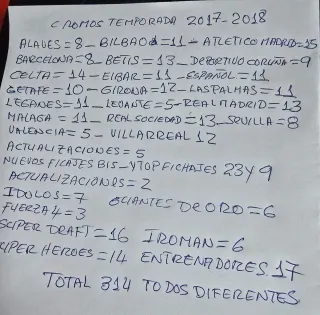 CROMOS TEMPORADA 2017-2018
ALAVES=8_ BILBAO=11 - ATLETICO MADRID=15
BARCELONA=8_ BETIS=13_ DEPORTIVO CORUÑA=9
CELTA=14- EIBAR=11 - ESPAÑOL=11
GETAFE=10- GIRONA=12- LAS PALMAS=11
LEGANES=11_ LEVANTE=5- REAL MADRID=13
MALAGA=11_ REAL SOCIEDAD=13_ SEVILLA=8
VALENCIA=5- VILLARREAL 12
ACTUALIZACIONES=5
NUEVOS FICHAJES BIS_Y TOP FICHAJES 23 Y 9
ACTUALIZACIONES=2
IDULOS=7 GUANTES DE ORO=6
FUERZA 4=3
SUPER DRAFT=16 IROMAN=6
SUPER HEROES=14 ENTRENADORES 17
TOTAL 314 TODOS DIFERENTES